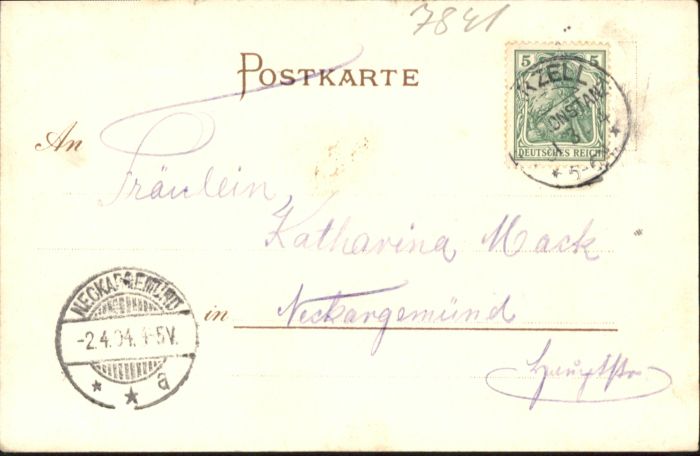 7841
POSTKARTE
5 5
DEUTSCHES REICH
KZELL
KONSTANZ
* 5-6
An
Fräulein
Katharina Mack
in Neckargemünd
Hauptstr
NECKARGEMÜND
-2.4.04.4-5V.
* * b